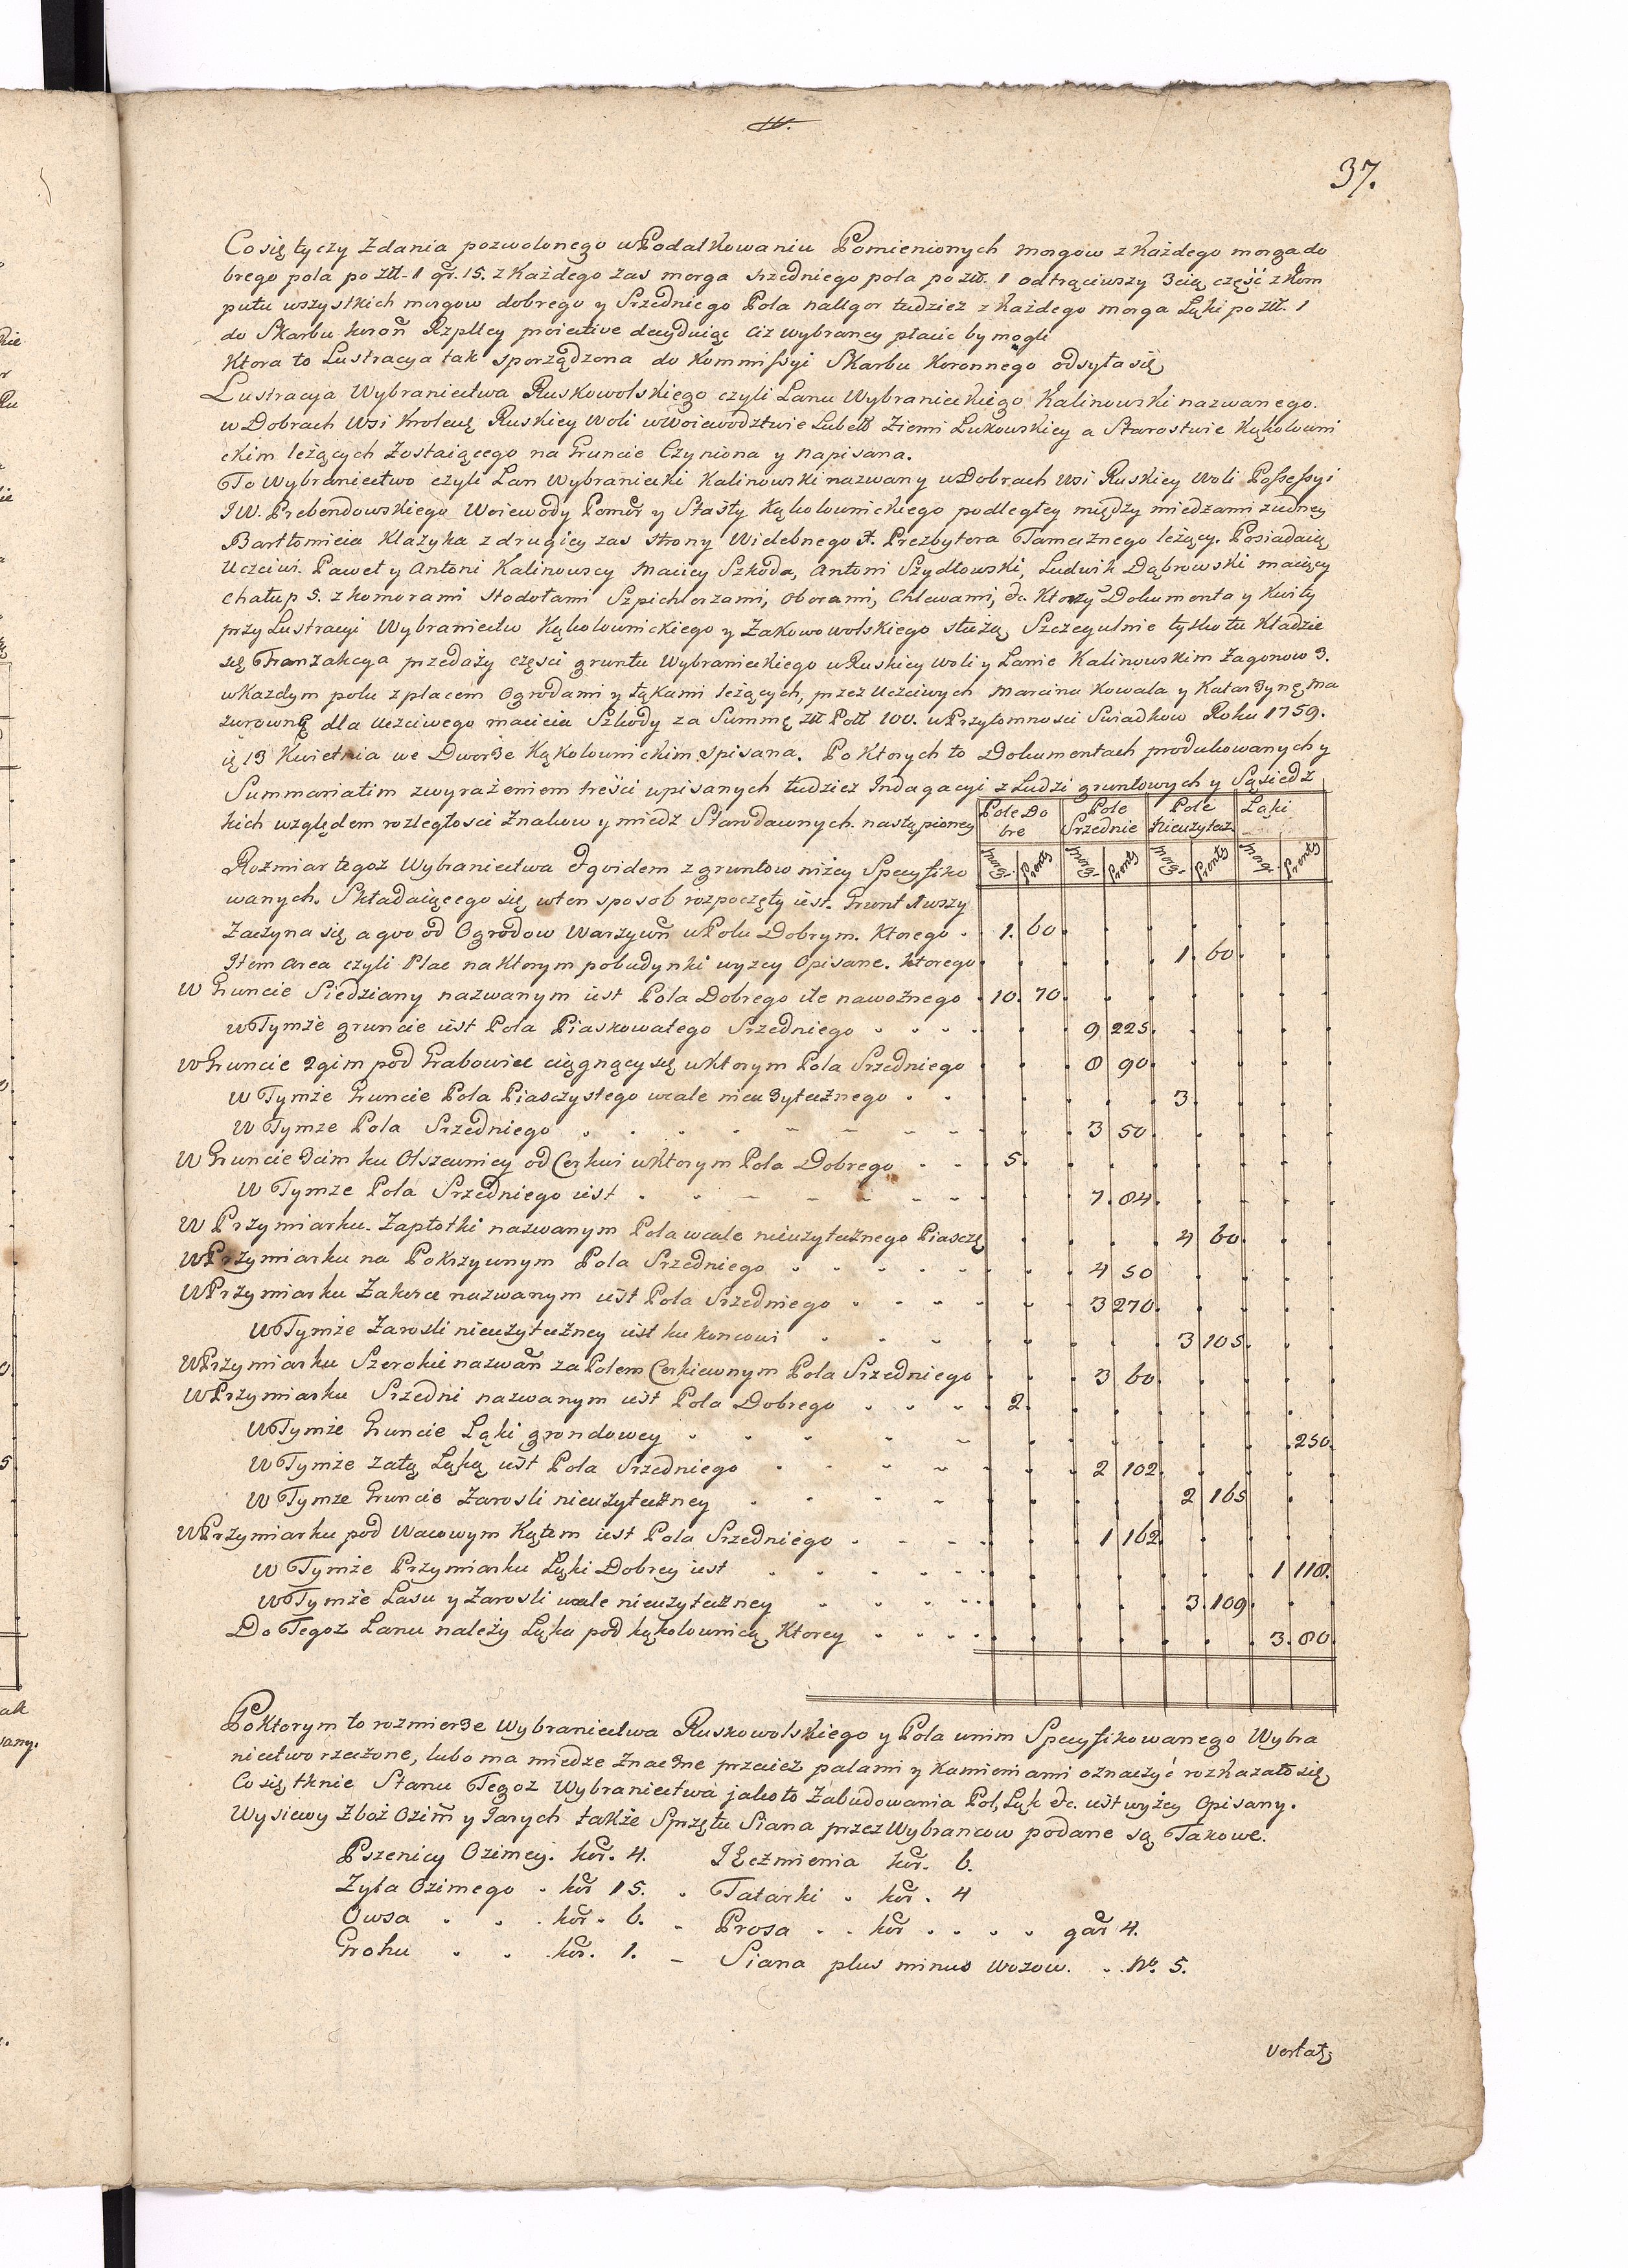 37.
Co się tyczy Zdania pozwolonego w Podatkowaniu Pomienionych morgow z każdego morga do
brego pola po Złł. 1 gr. 15. z Każdego zas morga srzedniego pola po złł. 1 odtrąciwszy 3cią część z kom
putu wszystkich morgow dobrego y Srzedniego Pola nallgor tudzież z każdego morga Łąki po złł. 1
do Skarbu koron Rzpltey decyduiąc ciż wybrancy płacic by mogli
Ktora to Lustracya tak sporządzona do Kommissyi Skarbu Koronnego odsyła się
Lustracya Wybraniectwa Ruskowolskiego czyli Łanu Wybranieckiego Kalinowski nazwanego.
w Dobrach Wsi Krolewę Ruskiey Woli w Woiewodztwie Lubell Ziemi Łukowskiey a Starostwie Kąkolowni
ckim leżących Zostaiącego na Gruncie Czyniona y napisana.
To Wybraniectwo czyli Łan Wybraniecki Kalinowski nazwany w Dobrach Wsi Ruskiey Woli Possessyi
JW. Prebendowskiego Woiewody Pomor y Stasty Kąkolownickiego podległey między miedzami z iedney
Bartłomieia Klażyka z drugiey zas strony Wielebnego X. Prezbytera Tamecznego leżący. Posiadaią
Uczciwi Paweł y Antoni Kalinowscy Maciey Szkoda, Antoni Szydłowski, Ludwik Dąbrowski maiący
chałup 5. z komorami stodołami Szpichlerzami, oborami, Chlewami, &c. Ktorzy Dokumenta y Kwity
przy Lustracyi Wybraniectw Kąkolownickiego y Zakowowolskiego służą, Szczegulnie tylko tu Kładzie
się Tranzakcya przedaży części gruntu Wybranieckiego w Ruskiey Woli y Łanie Kalinowskim Zagonow 3.
w Kazdym polu z placem Ogrodami y Łąkami leżących, przez Uczciwych Marcina Kowala y Katarzynę Ma
zurownę dla Uczciwego macieia Szkody za Summę złł Poll 100. w Przytomnosci Swiadkow Roku 1759.
ią 13 Kwietnia we Dworze Kąkolownickim spisana. Po Ktorych to Dokumentach produkowanych y
Summariatim z wyrażeniem treści wpisanych tudziez Indagacyi z Ludzi gruntowych y Sąsiedz
kich względem rozległosci Znakow y miedz Starodawnych. nastąpioney
Pole Do bre Pole Srzednie Pole Nieużytecz. Łąki
Morg. Pręty Morg. Pręty Morg. Pręty Morg. Pręty
Rozmiar tegoż Wybraniectwa & quidem z gruntow niżey Specyfiko
wanych. Składaiącego się, w ten sposob rozpoczęty iest. Grunt 1wszy
Zaczyna się a quo od Ogrodow Warzywn w Polu Dobrym. Ktorego . 1. 60
Item Area czyli Plac na Ktorym pobudynki wyzey Opisane. Ktorego 1. 60
W Gruncie Siedziany nazwanym iest Pola Dobrego ile nawoznego 10. 70
w Tymże gruncie iest Pola Piaskowatego Srzedniego 9 225
w Gruncie 2gim pod Grabowiec ciągnący się w Ktorym Pola Srzedniego 8 90
W Tymże Gruncie Pola Piasczystego wcale nieużytecznego 3
W Tymze Pola Srzedniego 3 50
W Gruncie 3cim ku Olszewnicy od Cerkwi w Ktorym Pola Dobrego 5
W Tymze Pola Srzedniego iest 7. 84
W Przymiarku Zapłotki nazwanym Pola wcale nieużytecznego Piasczę 4 60
W Przymiarku na Pokrzywnym Pola Srzedniego 4 50
W Przymiarku Zakorce nazwanym iest Pola Srzedniego 3 270
W Tymże Zarosli nieużyteczney iest ku koncowi 3 105
W Przymiarku Szerokie nazwan za Polem Cerkiewnym Pola Srzedniego 3 60
W Przymiarku Srzedni nazwanym iest Pola Dobrego 2
W Tymże Gruncie Łąki grondowey 250
W Tymże za tą Łąką iest Pola Srzedniego 2 102
W Tymze Gruncie Zarosli nieużyteczney 2 165
W Przymiarku pod Wacowym Kątem iest Pola Srzedniego 1 162
W Tymże Przymiarku Łąki Dobrey iest 1 118.
W Tymże Lasu y Zarosli wcale nieużyteczney 3. 109
Do Tegoz Łanu należy Łąka pod kąkolownicą, Ktorey 3. 80
Po Ktorym to rozmierze Wybraniectwa Ruskowolskiego y Pola w nim Specyfikowanego Wybra
niectwo rzeczone, lubo ma miedze znaczne przecież palami y Kamieniami oznaczyć rozkazało się
Co się tknie Stanu Tegoz Wybraniectwa jako to Zabudowania Pol, Łąk &c. iest wyżey Opisany.
Wysiewy Zboż Ozim y Jarych także Sprzętu Siana przez Wybrancow podane są Takowe.
Pszenicy Ozimey. kor. 4. Jęczmienia kor. 6.
Zyta Ozimego . kor 15. . Tatarki . kor. 4
Owsa . . . kor. 6. - Prosa . . kor . . . . gar 4.
Grohu . . . kor. 1. - Siana plus minus wozow. . . No. 5.
Vertatę